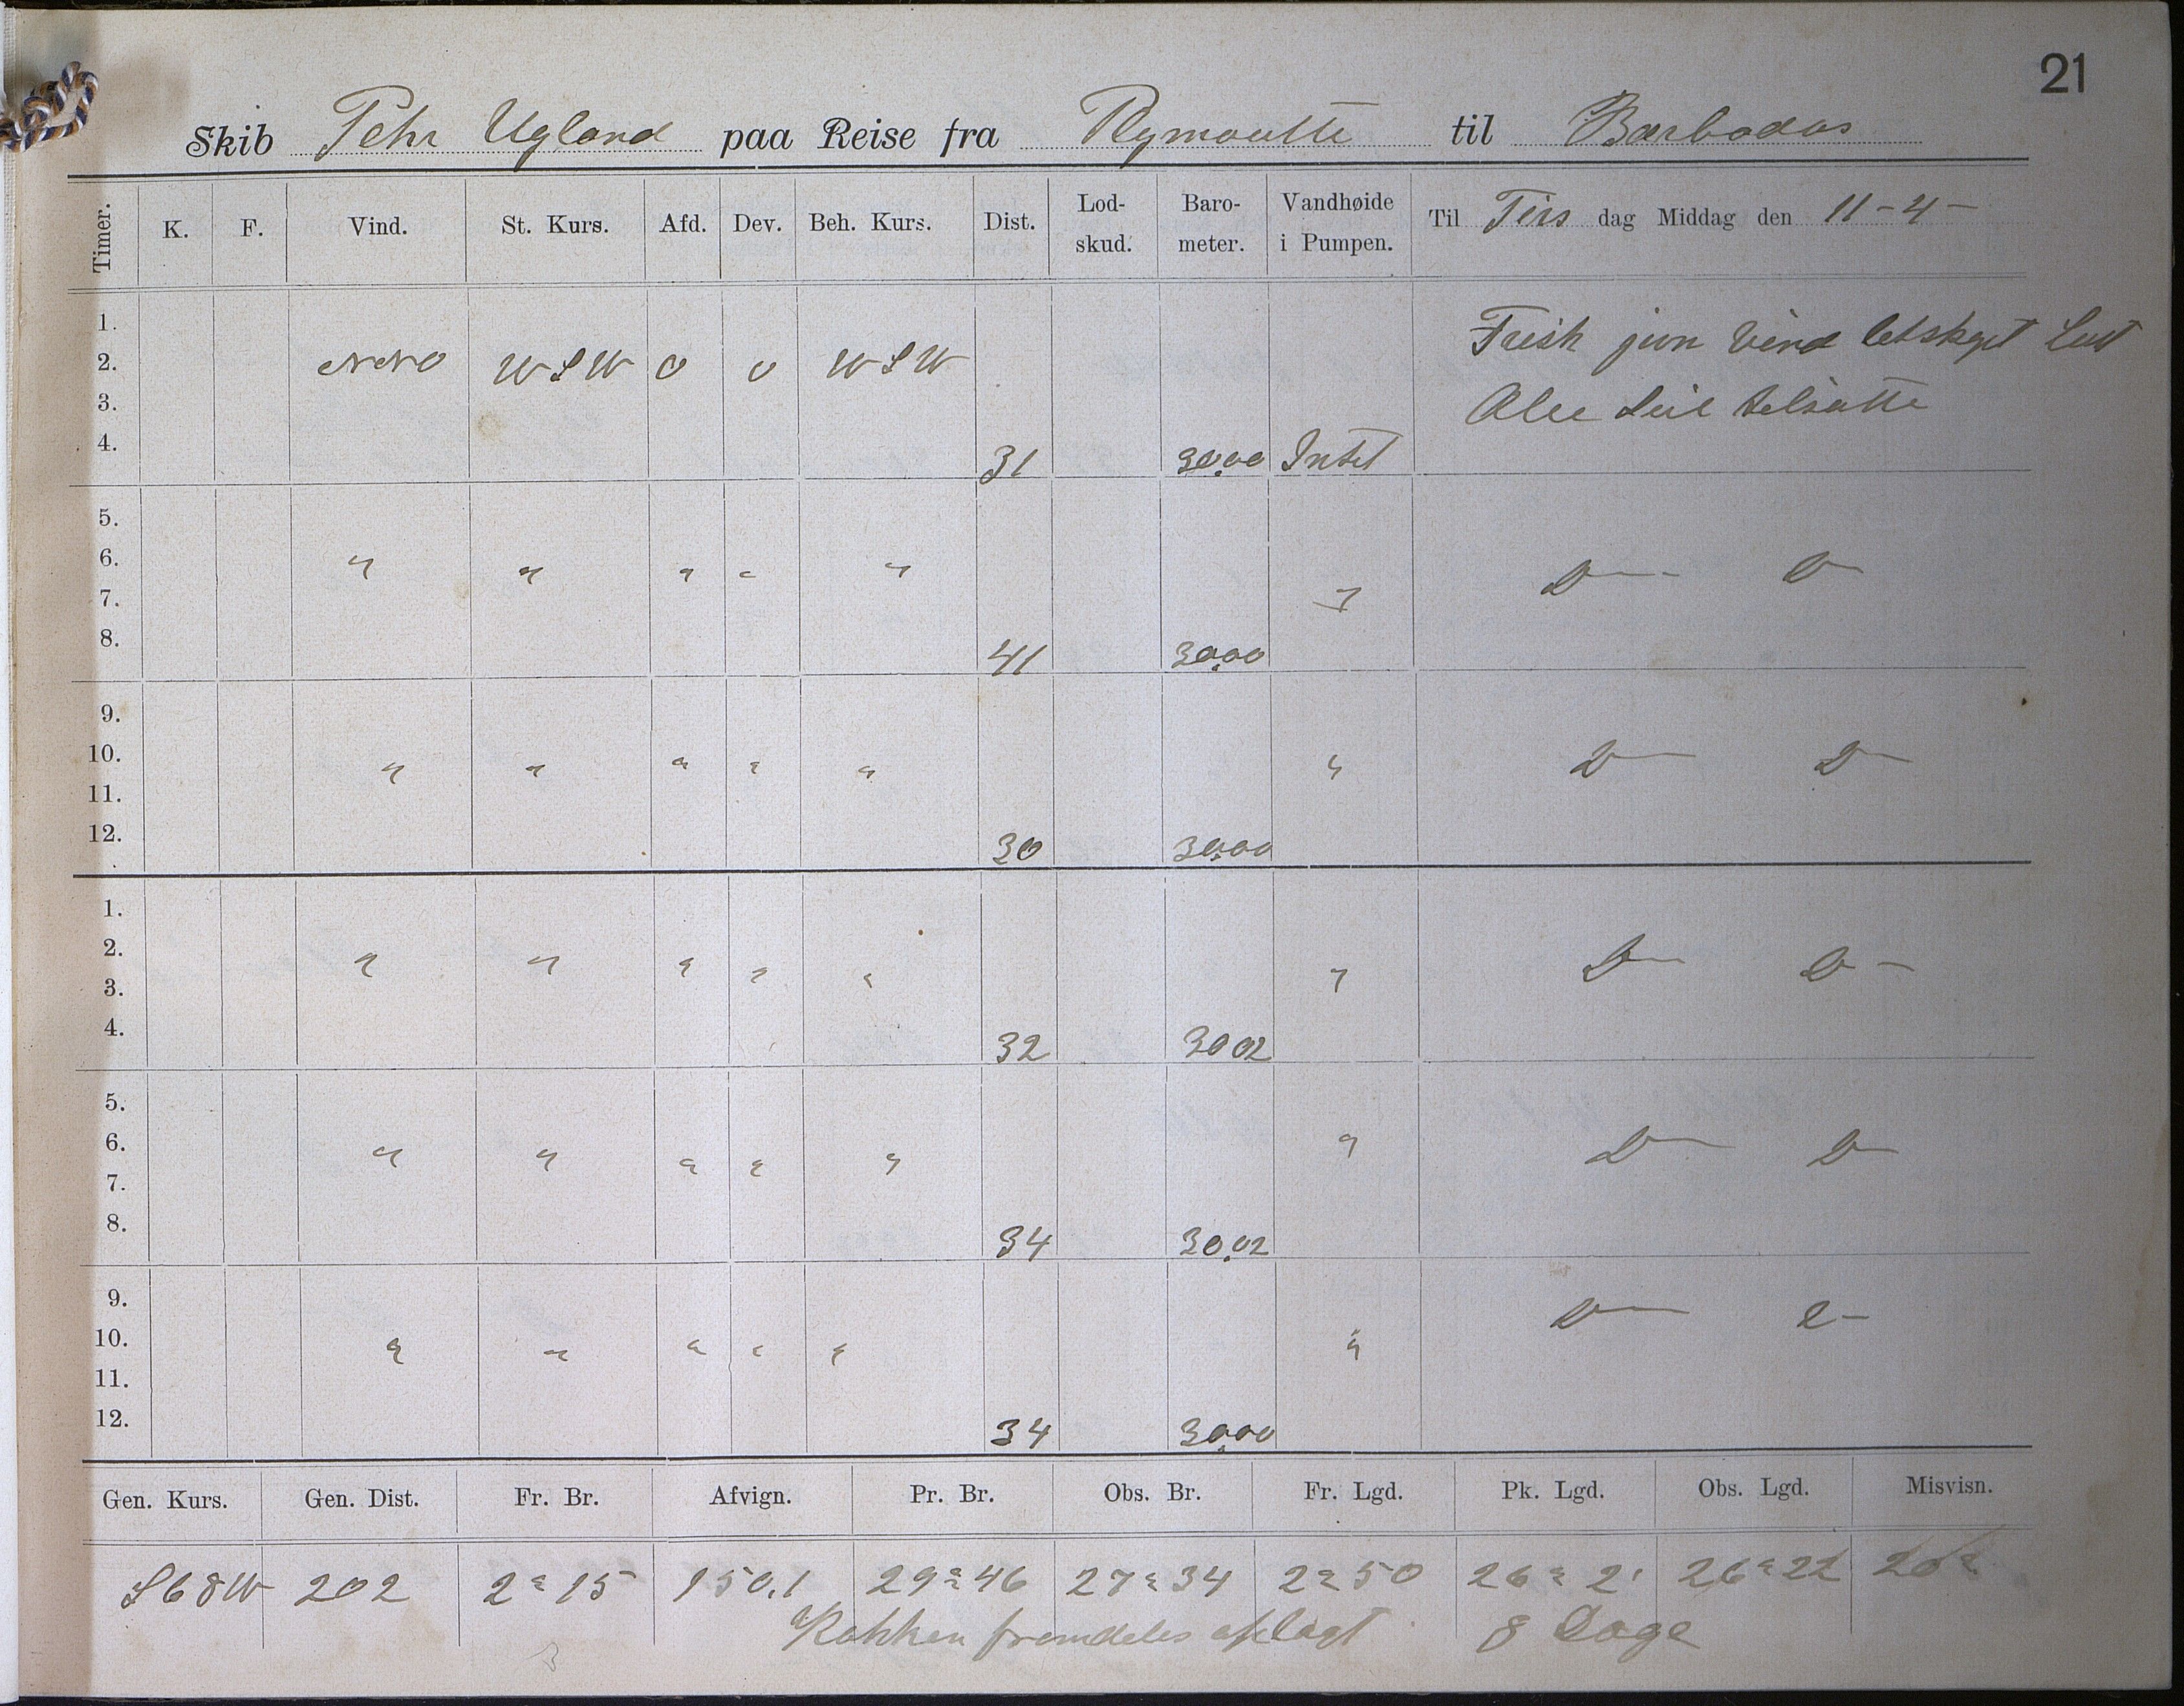 21
Skib Pehr Ugland paa Reise fra Plymouth til Barbados
Timer. K. F. Vind. St. Kurs. Afd. Dev. Beh. Kurs. Dist. Lod-skud. Baro-meter. Vandhøide i Pumpen. Til Tirs dag Middag den 11-4-
1. Frisk jvn Vind letskyet Luft
2. NNO WSW 0 0 WSW
3. Alle Seil tilsatte
4. 31 30.00 Intet
5.
6. " " " " " D— D—
7. "
8. 41 30.00
9.
10. " " " " " " D— D—
11.
12. 30 30.00
1.
2. " " " " " " D— D—
3.
4. 32 30 02
5.
6. " " " " " " D— D—
7.
8. 34 30.02
9. D— D—
10. " " " " " "
11.
12. 34 30.00
Gen. Kurs. Gen. Dist. Fr. Br. Afvign. Pr. Br. Obs. Br. Fr. Lgd. Pk. Lgd. Obs. Lgd. Misvisn.
S68W 202 2° 15 150,1 29° 46 27° 34 2° 50 26° 2' 26° 22 20°
Kokken fremdeles aflagt 8 Dage